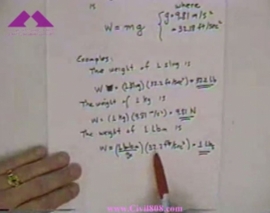 is
where
W = mg { g = 9.81 m/s²
= 32.18 ft/sec²
Examples:
The weight of 1 slug is
W = (1 slug) (32.2 ft/sec²) = 32.2 lb
The weight of 1 kg is
W = (1 kg) (9.81 m/s²) = 9.81 N
The weight of 1 lbm is
(32.2 ft/sec²) = 1 lb
www.Civil808.com